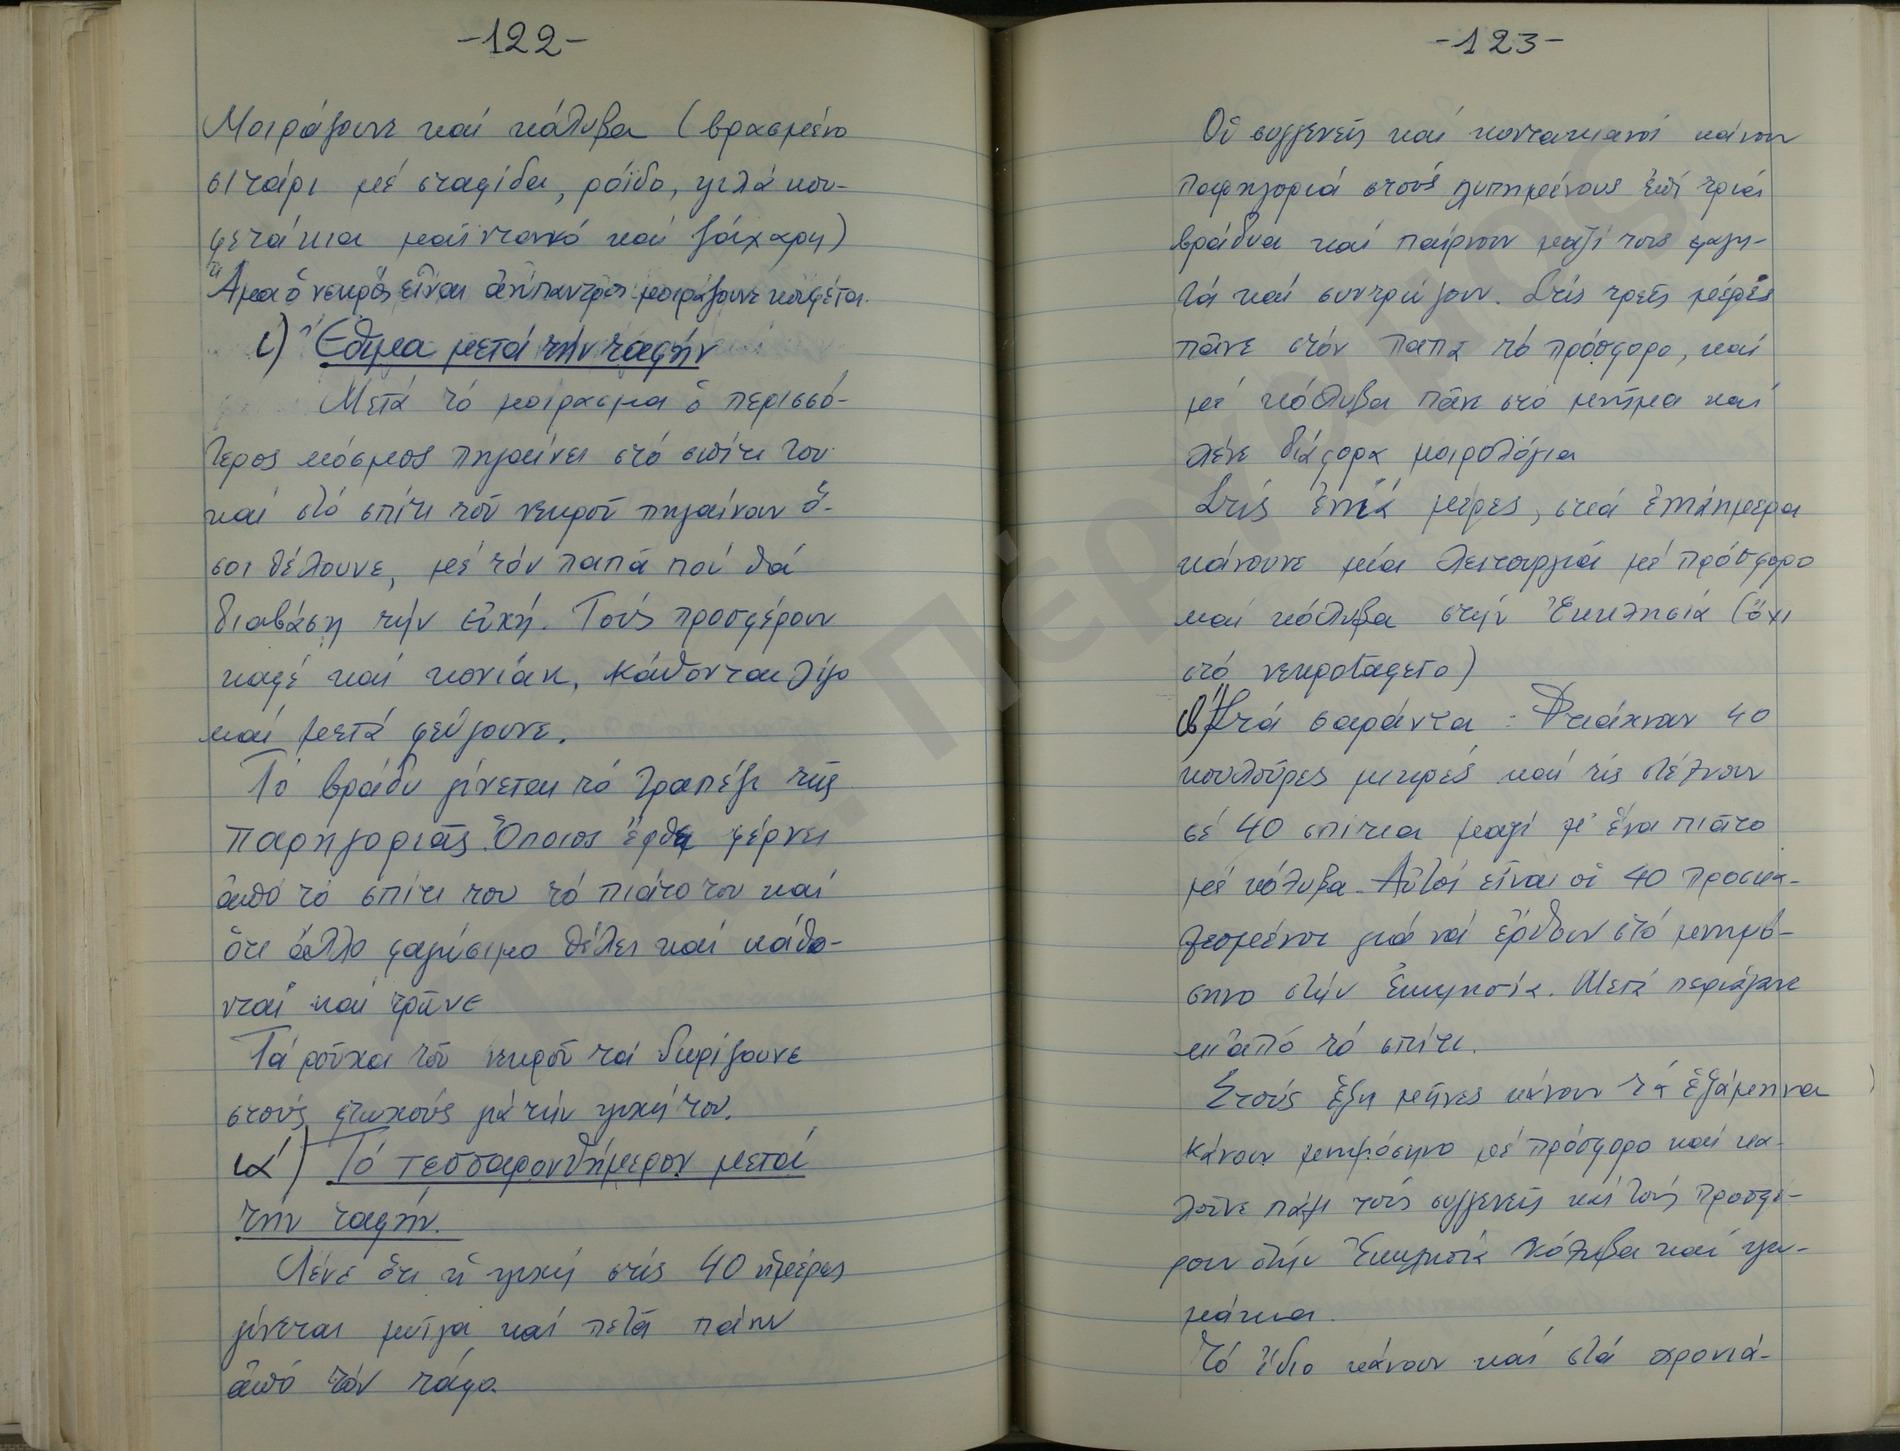 -122-
Μοιράζουνε καί κόλυβα (βρασμένο
σιτάρι μέ σταφίδα, ρόϊδο, ψιλά κου-
φετάκια μαϊντανό καί ζάχαρη)
Ἅμα ὁ νεκρός εἶναι ἀνύπαντρος μοιράζουνε κουφέτα.
ι) Ἔθιμα μετά τήν ταφήν
Μετά τό μοίρασμα ὁ περισσό-
τερος κόσμος πηγαίνει στό σπίτι του
καί στό σπίτι τοῦ νεκροῦ πηγαίνουν ὅ-
σοι θέλουνε, μέ τόν παπά πού θά
διαβάση τήν εὐχή. Τούς προσφέρουν
καφέ καί κονιάκ, κάθονται λίγο
καί μετά φεύγουνε.
Τό βράδυ γίνεται τό τραπέζι τῆς
παρηγοριᾶς. Ὅποιος ἔρθη φέρνει
ἀπό τό σπίτι του τό πιάτο του καί
ὅτι ἄλλο φαγώσιμο θέλει καί κάθο-
νται καί τρῶνε
Τά ροῦχα τοῦ νεκροῦ τά δωρίζουνε
στούς φτωχούς γιά τήν ψυχή του.
ια) Τό τεσσαρονθήμερον μετά
τήν ταφήν.
Λένε ὅτι ἡ ψυχή στίς 40 ἡμέρες
γίνεται μυῖγα καί πετᾶ πάνω
ἀπό τόν τάφο.
-123-
Οἱ συγγενεῖς καί κοντακιανοί κάνουν
παρηγοριά στούς λυπημένους ἐπί τρία
βράδυα καί παίρνουν μαζί τους φαγη-
τά καί συντρώγουν. Στίς τρεῖς μέρες
πᾶνε στόν παπά τό πρόσφορο, καί
μέ κόλλυβα πᾶνε στό μνῆμα καί
λένε διάφορα μοιρολόγια
Στίς ἐννιά μέρες, στά ἐννιάημερα
κάνουνε μία λειτουργιά μέ πρόσφορο
καί κόλλυβα στήν Ἐκκλησιά (ὄχι
στό νεκροταφεῖο)
Στά σαράντα: Φτιάχναν 40
κουλοῦρες μικρές καί τίς στέλνουν
σέ 40 σπίτια μαζί μ' ἕνα πιάτο
μέ κόλυβα. Αὐτοί εἶναι οἱ 40 προσκα-
λεσμένοι γιά νά ἔρθουν στό μνημό-
συνο στήν Ἐκκλησία. Μετά περνάγανε
κι' ἀπό τό σπίτι.
Στούς ἕξη μῆνες κάνουν τά ἑξάμηνα
Κάνουν μνημόσυνο μέ πρόσφορο καί κα-
λοῦνε πάλι τούς συγγενεῖς καί τούς προσφέ-
ρουν στήν Ἐκκλησία κόλυβα καί ψω-
μάκια.
Τό ἴδιο κάνουν καί στά χρονιά-